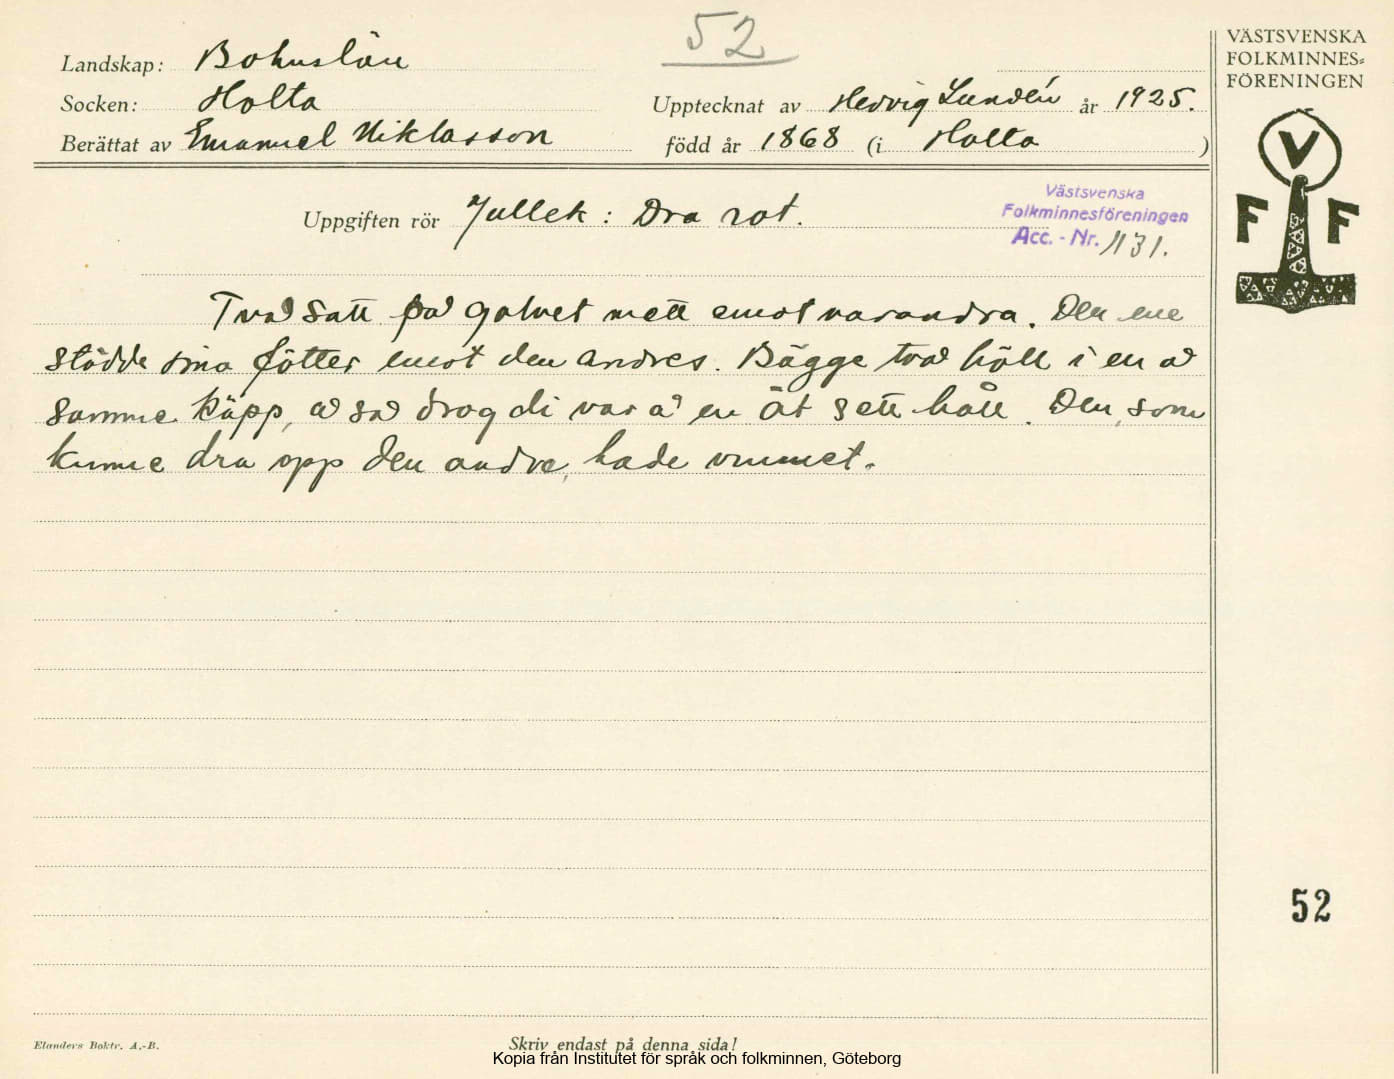 52
VÄSTSVENSKA
FOLKMINNES=
FÖRENINGEN
Landskap: Bohuslän
Socken: Holta
Upptecknat av Hedvig Lundén år 1925.
Berättat av Emanuel Niklasson
född år 1868 (i Holta )
V
F F
Västsvenska
Folkminnesföreningen
Acc. - Nr. 1131.
Uppgiften rör Jullek: Dra rot.
Två satt på golvet mett emot varandra. Den ene
stödde sina fötter emot den andres. Bägge två höll i en å
samme käpp, å så drog di var å en åt sett håll. Den, som
kunne dra opp den andre, hade vunnet.
52
Elanders Boktr. A.-B.
Skriv endast på denna sida!
Kopia från Institutet för språk och folkminnen, Göteborg